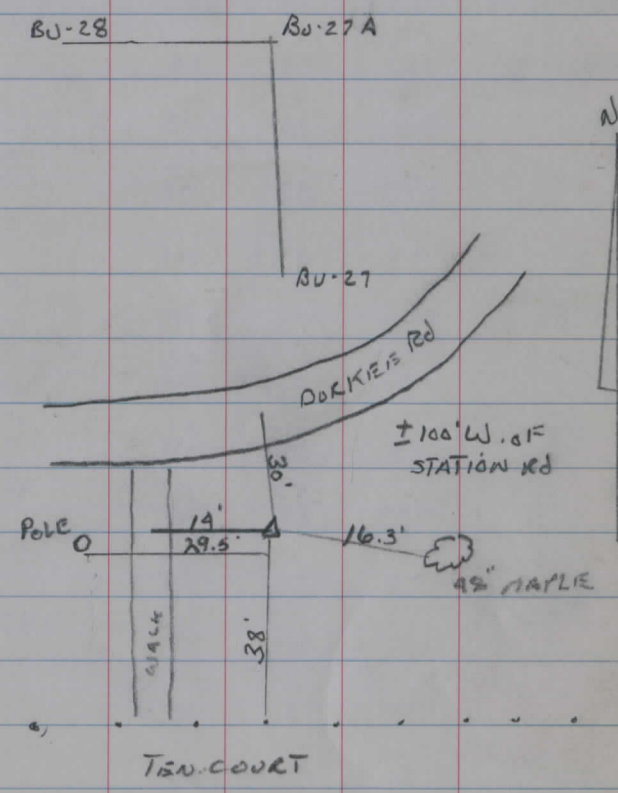 BU-28
BU-27A
N
BU-27
DORKIEE Rd
± 100' W. OF
STATION Rd
30'
POLE
14'
29.5'
16.3'
48" MAPLE
WALK
38'
TEN. COURT